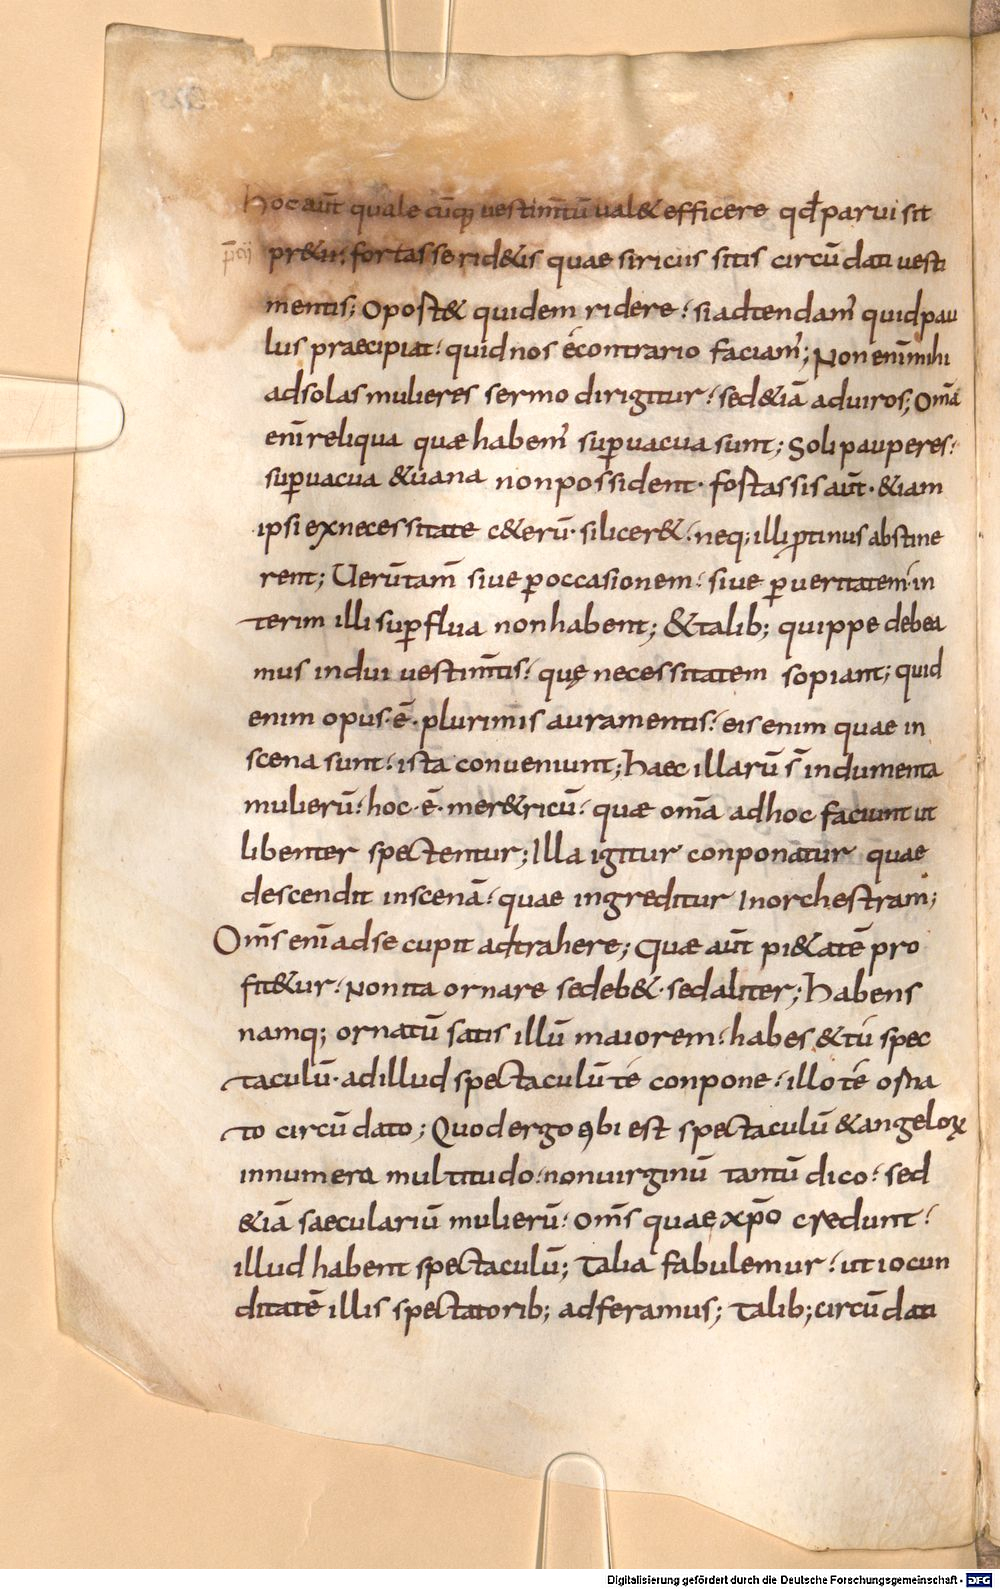 hoc aūt quale cūq; vestim̄tū ual& efficere qd̄ parui sit
p̄cii pr&ii; fortasse rid&is quae siricus sitis circū dati vesti
mentis; Oport& quidem ridere; si adtendam' quid pau
lus praecipiat; quid nos écontrario faciam'; Non enī mihi
ad solas mulieres sermo dirigitur; sed &iā ad uiros; Om̄a
enī reliqua quae habem' suꝑuacua sunt; Soli pauperes;
suꝑuacua & uana non possident· fortassis aūt· &iam
ipsi ex necessitate c&erū· si licer&; neq; illi ꝓtinus abstine
rent; Uerūtam̄ siue ꝑ occasionem; siue ꝑ ueritatem· in
terim illi suꝑflua non habent; & talib; quippe debea
mus indui vestim̄tis; quę necessitatem sopiant; quid
enim opus· ē· plurimis auramentis; eis enim quae in
scena sunt; ista conueniunt; haec illarū s̄ indumenta
mulierū; hoc· ē· mer&ricū; quae om̄a ad hoc faciunt ut
libenter spectentur; Illa igitur conponatur quae
descendit in scenā; quae ingreditur In orchestram;
Om̄s enī ad se cupit adtrahere; Quae aūt pi&atē pro
fit&ur; Non ita ornare se deb&· sed aliter; habens
namq; ornatū satis illū maiorem; habes & tú spec
taculū· ad illud spectaculū té conpone; illo té orna
to circū dato; Quod ergo ꝗbi est spectaculū & angeloꝝ
innumera multitudo; non uirginū tantū dico; sed
&iā saeculariū mulierū; om̄s quae xp̄o credunt;
illud habent spectaculū; Talia fabulemur; ut iocun
ditatē illis spectatorib; adferamus; Talib; circū dati
Digitalisierung gefördert durch die Deutsche Forschungsgemeinschaft - DFG